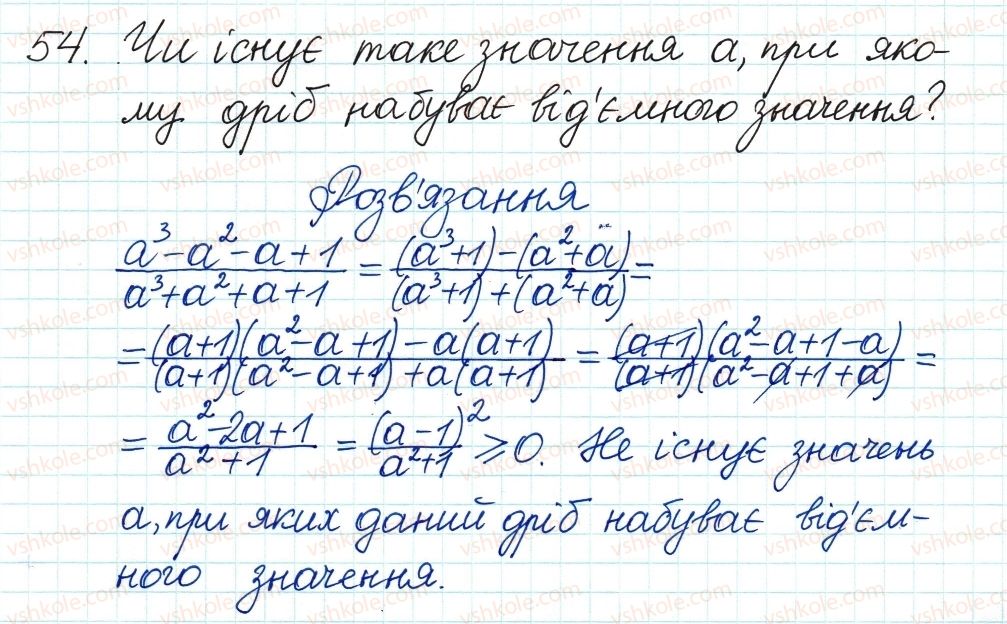 54. Чи існує таке значення a, при яко-
му дріб набуває від'ємного значення?
Розв'язання
(a³-a²-a+1)/(a³+a²+a+1) = ((a³+1)-(a²+a))/((a³+1)+(a²+a)) =
= ((a+1)(a²-a+1)-a(a+1))/((a+1)(a²-a+1)+a(a+1)) = ((a+1)(a²-a+1-a))/((a+1)(a²-a+1+a)) =
= (a²-2a+1)/(a²+1) = (a-1)²/(a²+1) ⩾0. Не існує значень
a, при яких даний дріб набуває від'єм-
ного значення.